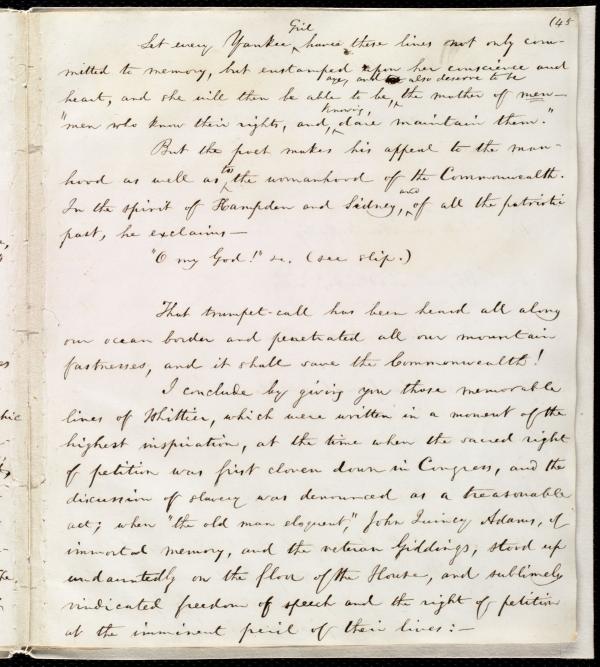 (45
Girl
Let every Yankee, have these lines not only com-
mitted to memory, but enstamped upon her conscience and
aye, and also deserve to be
heart, and she will then be able to be, the mother of men—
knowing,
"men who know their rights, and, dare maintain them."
But the poet makes his appeal to the man-
hood as well as to the womanhood of the Commonwealth.
In the spirit of Hampden and Sidney, and of all the patriotic
past, he exclaims—
"O my God!" &c. (see slip.)
That trumpet-call has been heard all along
our ocean border and penetrated all our mountain
fastnesses, and it shall save the Commonwealth!
I conclude by giving you those memorable
lines of Whittier, which were written in a moment of the
highest inspiration, at the time when the sacred right
of petition was first cloven down in Congress, and the
discussion of slavery was denounced as a treasonable
act; when "the old man eloquent," John Quincy Adams, of
immortal memory, and the veteran Giddings, stood up
undauntedly on the floor of the House, and sublimely
vindicated freedom of speech and the right of petition
at the imminent peril of their lives:—